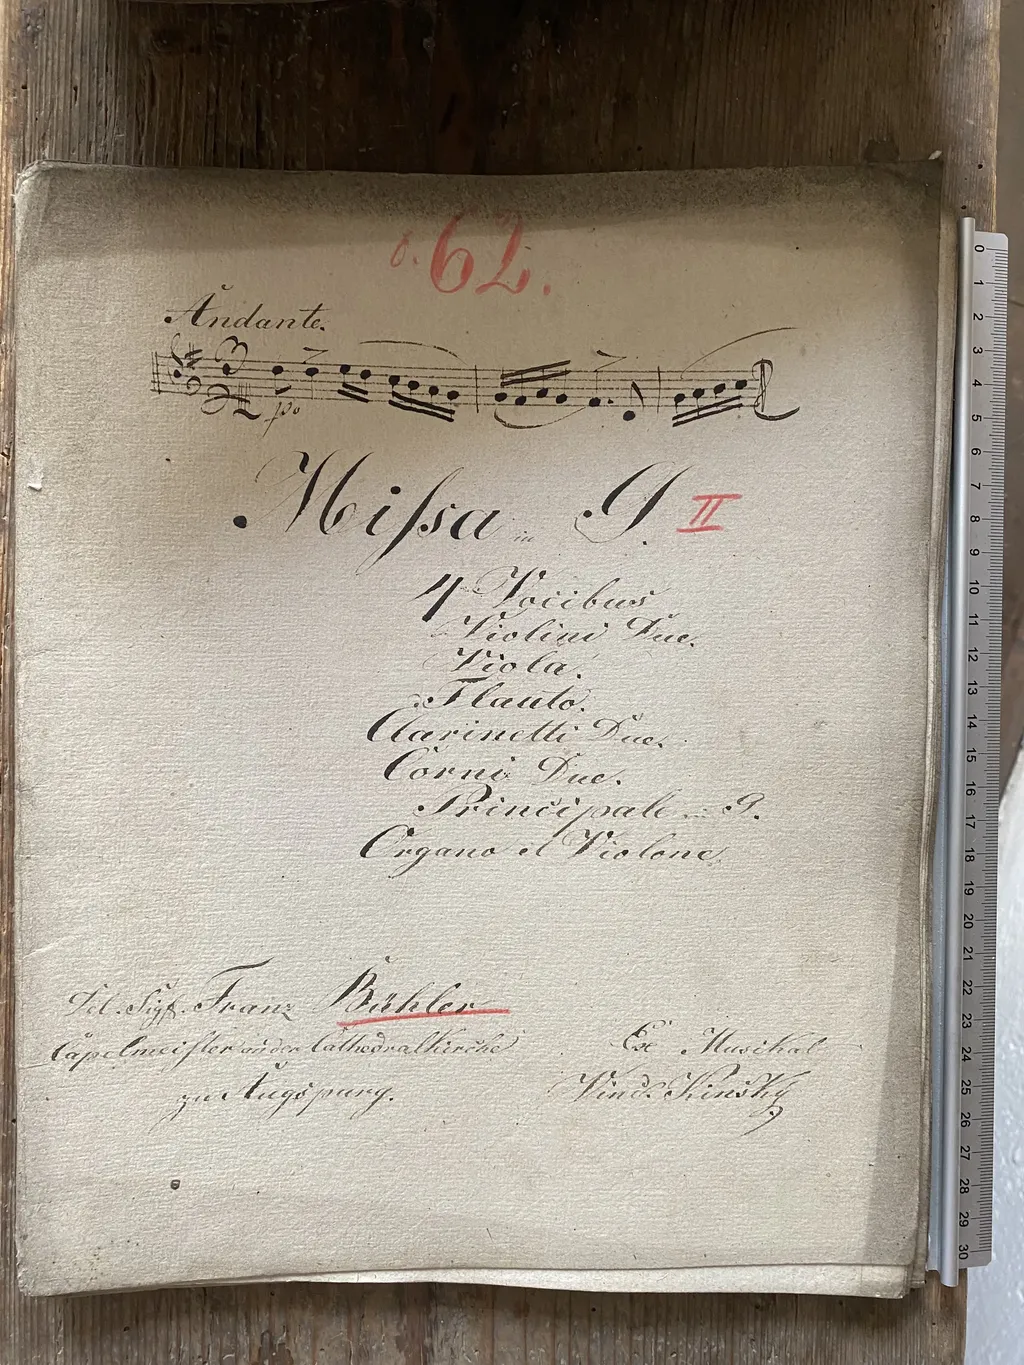 6. 62.
Andante.
3
po
Missa in G. II
4 Vocibus
Violini Due.
Viola.
Flauto.
Clarinetti Due.
Corni Due.
Principale in G.
Organo et Violone.
Del. Sigf. Franz Bühler
Capelmeister an der Cathedralkirche
zu Augspurg.
Ex Musikal
Vind. Kinsky
0 1 2 3 4 5 6 7 8 9 10 11 12 13 14 15 16 17 18 19 20 21 22 23 24 25 26 27 28 29 30